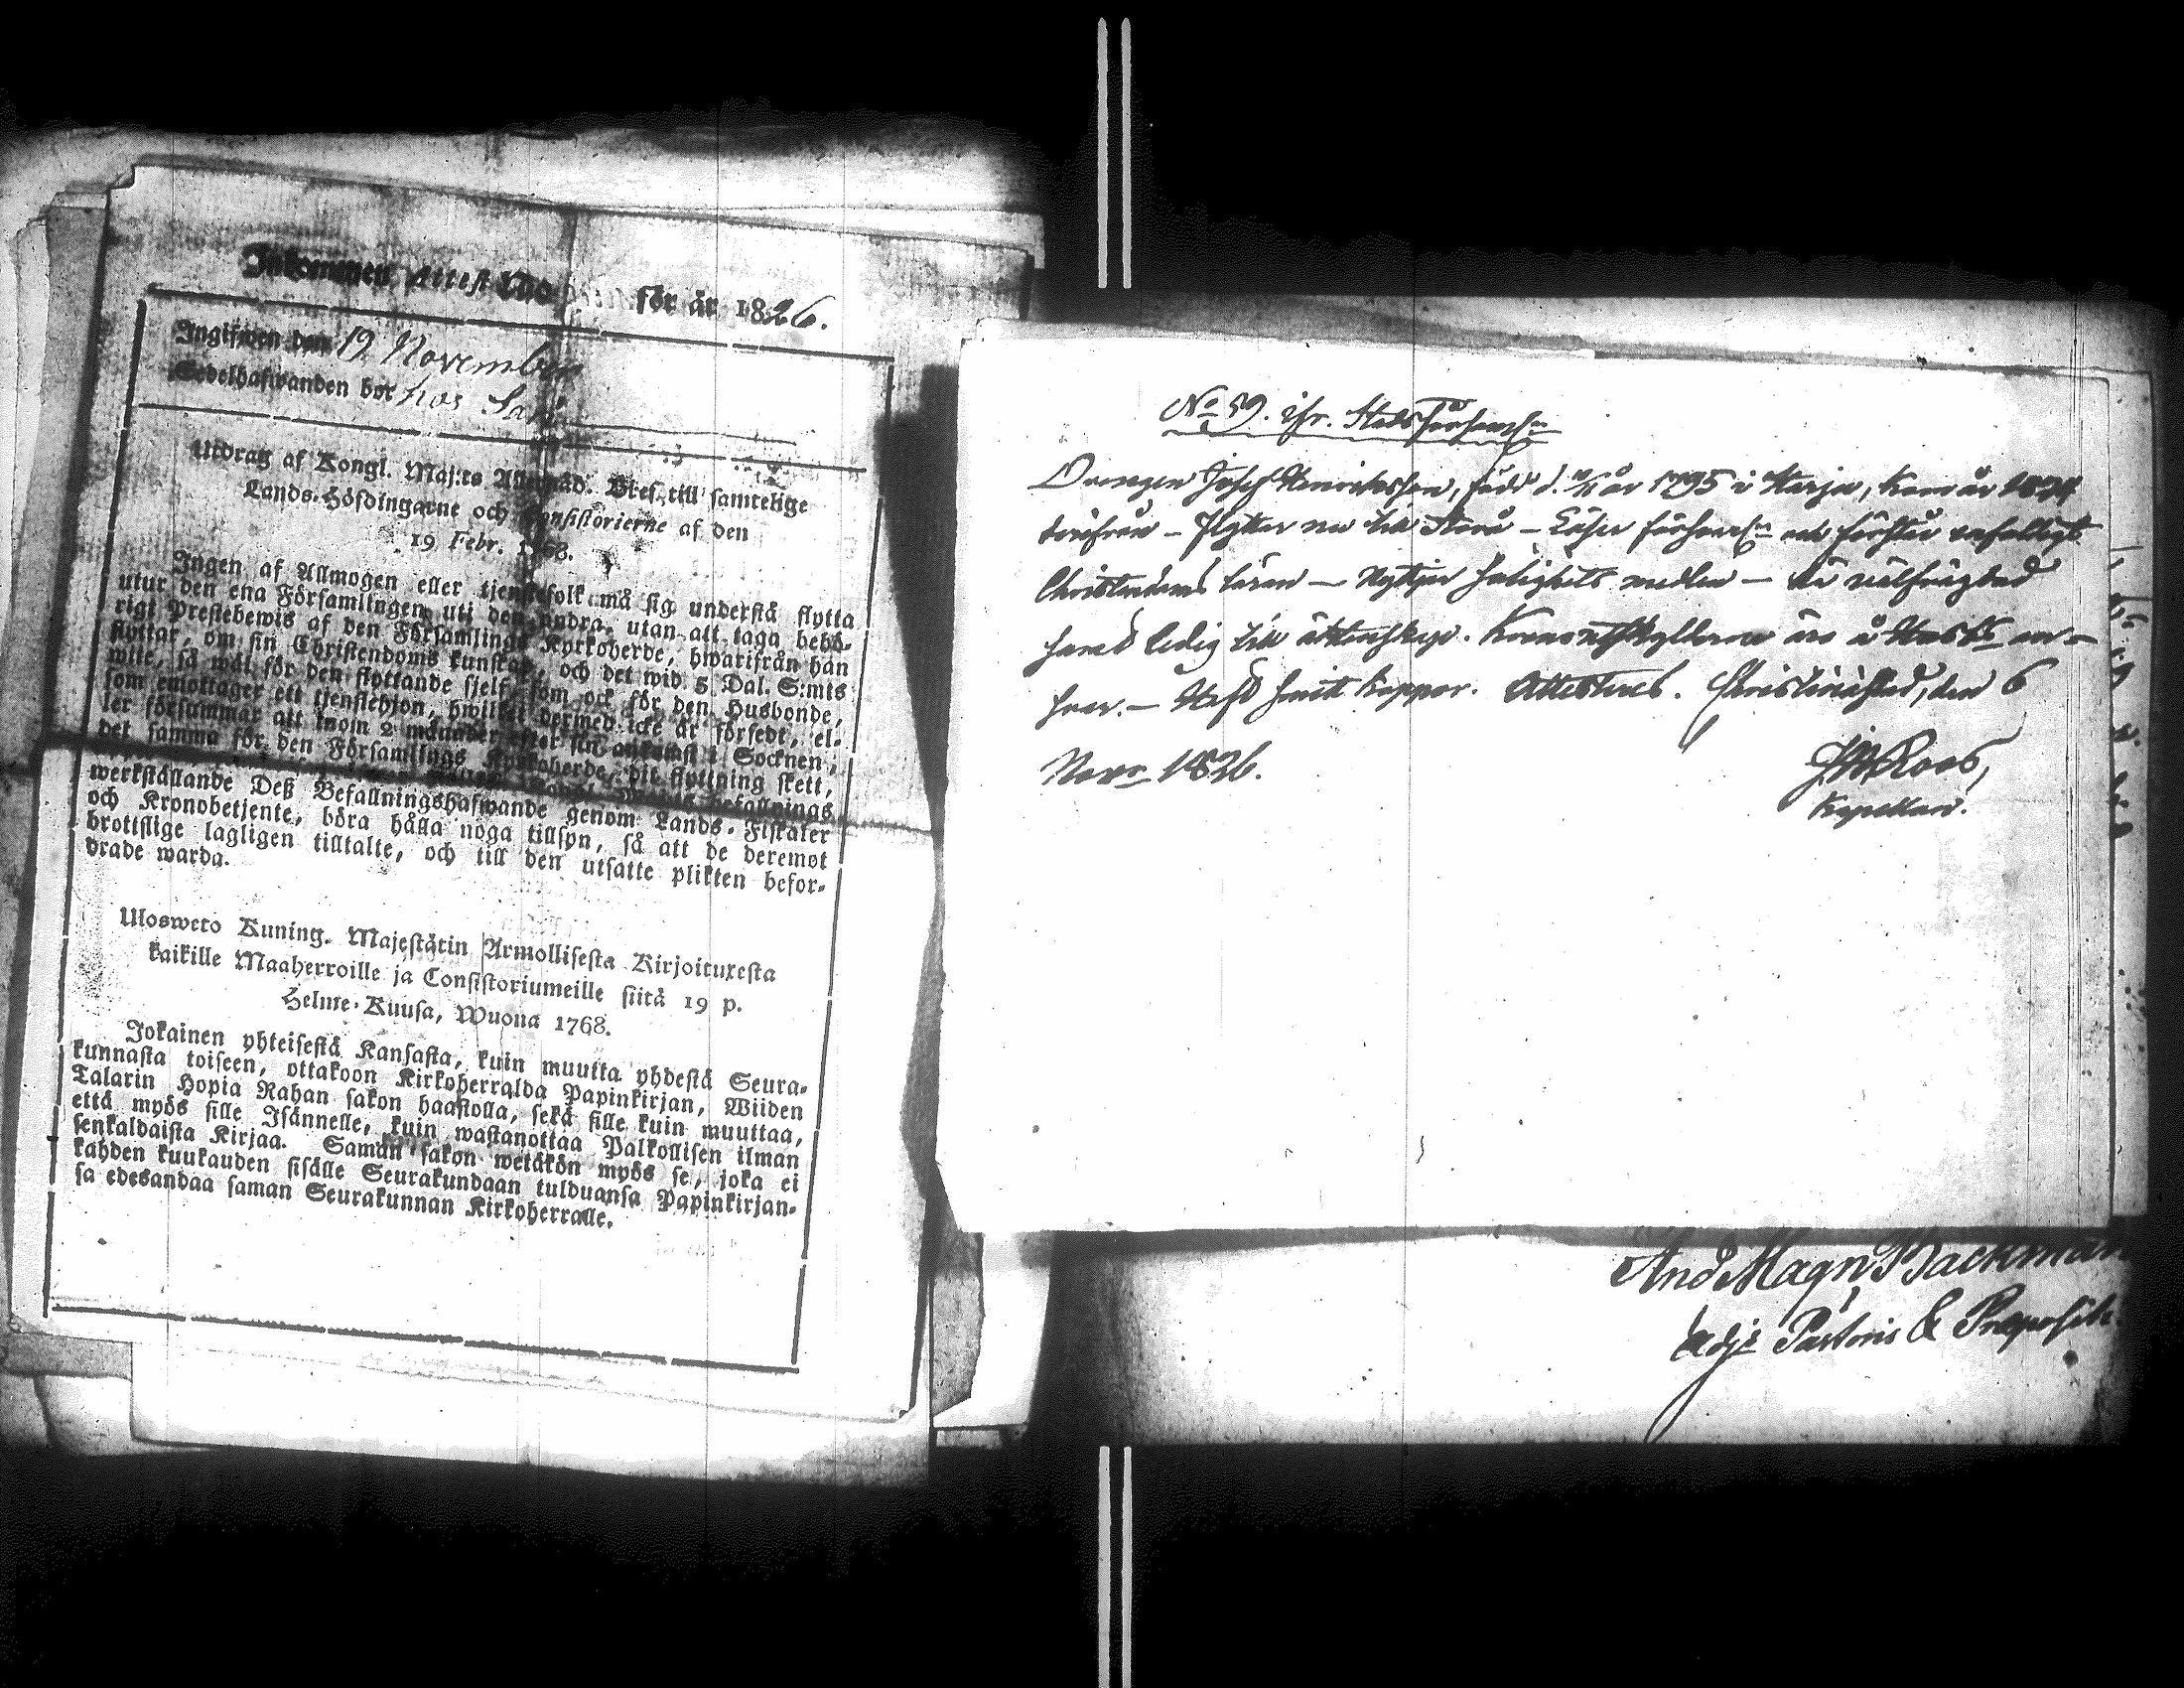 Inkommen attest No för år 1826.
Ingifwen den 19 November
Sedelhafwanden bor hos
Utdrag af Kongl. Maj:ts Allernåd. Bref till samtelige
Lands-Höfdingarne och Consistorierne af den
19 Febr. 1768.
Ingen af Allmogen eller tjenstefolk må sig understå flytta
utur den ena Församlingen uti den andra, utan att taga behö-
rigt Prestebewis af den Församlings Kyrkoherde, hwarifrån han
flyttar, om sin Christendoms kunskap, och det wid 5 Dal. S:mts
wite, så wäl för den flyttande sjelf, som ock för den Husbonde,
som emottager ett tjenstehjon, hwilket dermed icke är försedt, el-
ler försummar att inom 2 månader efter sin ankomst i Socknen,
det samma för den Församlings Kyrkoherde, dit flyttning skett,
befallnings
werkställande Deß Befallningshafwande genom Lands-Fiskaler
och Kronobetjente, böra hålla noga tillsyn, så att de deremot
brottslige lagligen tilltalte, och till den utsatte plikten befor-
drade warda.
Ulosweto Kuning. Majestätin Armollisesta Kirjoituxesta
kaikille Maaherroille ja Consistoriumeille siitä 19 p.
Helme-Kuusa, Wuona 1768.
Jokainen yhteisestä Kansasta, kuin muutta yhdestä Seura-
kunnasta toiseen, ottakoon Kirkoherralda Papinkirjan, Wiiden
Talarin Hopia Rahan sakon haastolla, sekä sille kuin muuttaa,
että myös sille Isännelle, kuin wastanottaa Palkollisen ilman
senkaldaista Kirjaa. Saman sakon wetäkön myös se, joka ei
kahden kuukauden sisälle Seurakundaan tulduansa Papinkirjan-
sa edesandaa saman Seurakunnan Kirkoherralle.
No 59. ifr. Stadsförsaml:n
Drengen Josef Henriksson, född d. år 1795 i Karja, kom år 1824
derifrån – flyttar nu till Storå – Läser försvarl:n och förstår enfaldigt
Christendoms läran – Nyttjar salighets medlen – är välfrägdad
samt ledig till äktenskap. Kronoutskylderna äro å Stads an-
svar. – Haft smitt koppor. Attesteras. Christinestad, den 6
Nov:r 1826.
J W Roos,
Kapellan.
And Magn Backman
Adj:s Pastoris & Præpositi.